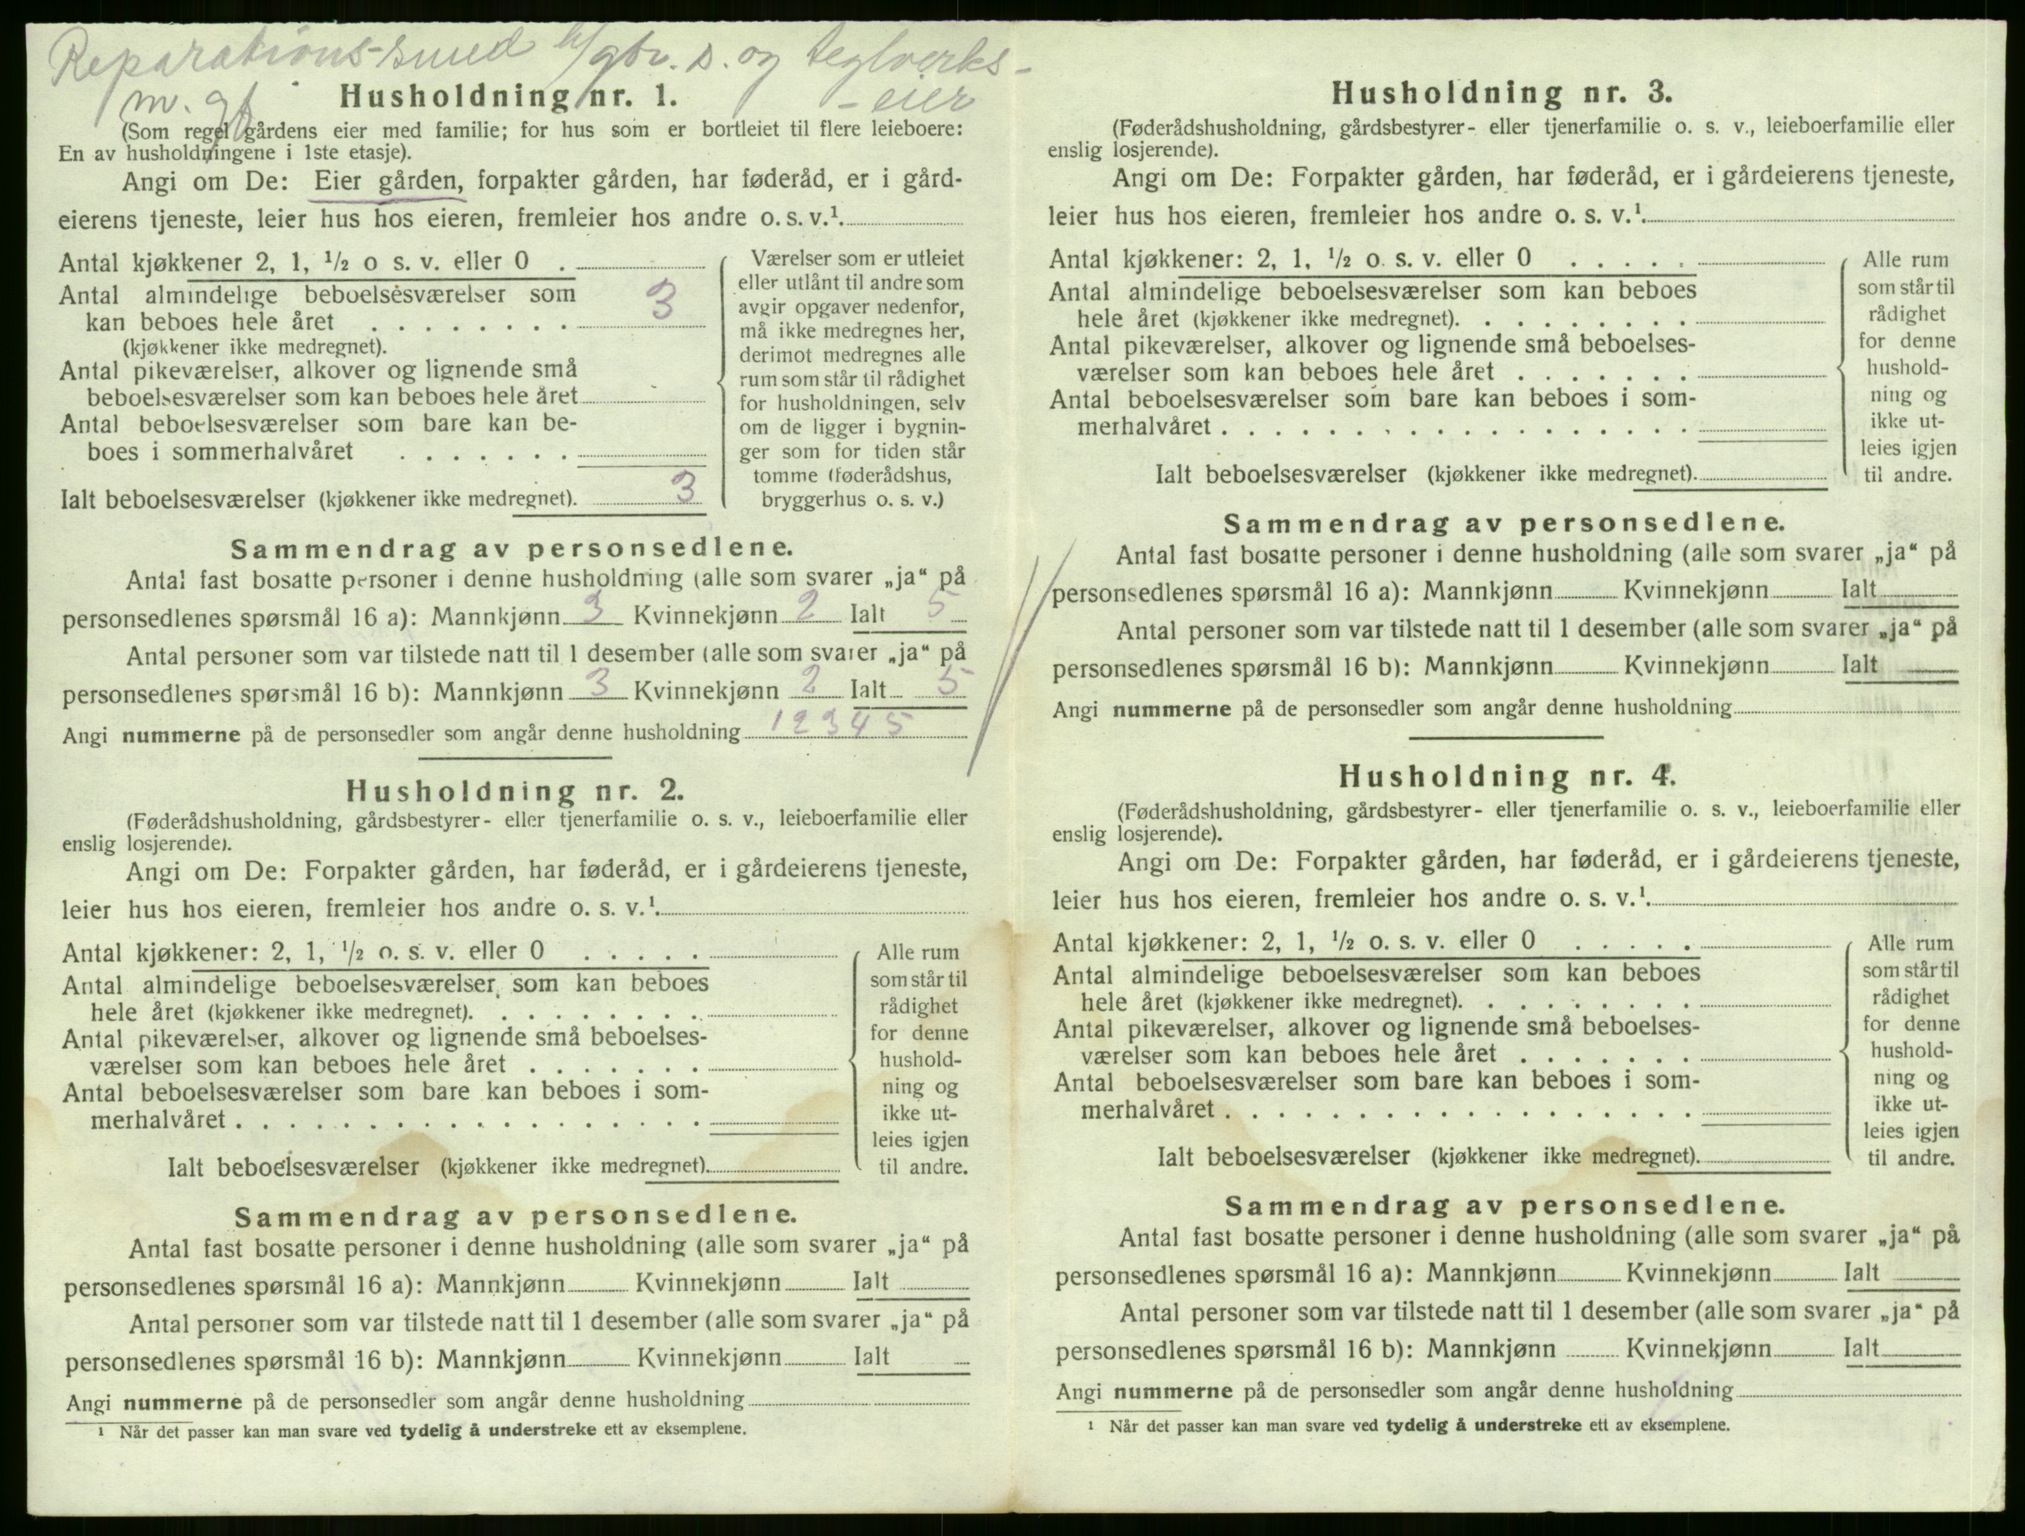 Reparations-smed h/gbr. s. og teglverks-
m. gf. - eier
Husholdning nr. 1.
(Som regel gårdens eier med familie; for hus som er bortleiet til flere leieboere:
En av husholdningene i 1ste etasje).
Angi om De: Eier gården, forpakter gården, har føderåd, er i gård-
eierens tjeneste, leier hus hos eieren, fremleier hos andre o. s. v.¹.
Antal kjøkkener 2, 1, ½ o s. v. eller 0 .
Antal almindelige beboelsesværelser som
kan beboes hele året . . . . . . . . 3
(kjøkkener ikke medregnet).
Antal pikeværelser, alkover og lignende små
beboelsesværelser som kan beboes hele året
Antal beboelsesværelser som bare kan be-
boes i sommerhalvåret . . . . . . .
Ialt beboelsesværelser (kjøkkener ikke medregnet). 3
Værelser som er utleiet
eller utlånt til andre som
avgir opgaver nedenfor,
må ikke medregnes her,
derimot medregnes alle
rum som står til rådighet
for husholdningen, selv
om de ligger i bygnin-
ger som for tiden står
tomme (føderådshus,
bryggerhus o. s. v.)
Sammendrag av personsedlene.
Antal fast bosatte personer i denne husholdning (alle som svarer „ja“ på
personsedlenes spørsmål 16 a): Mannkjønn 3 Kvinnekjønn 2 Ialt 5
Antal personer som var tilstede natt til 1 desember (alle som svarer „ja“ på
personsedlenes spørsmål 16 b): Mannkjønn 3 Kvinnekjønn 2 Ialt 5
Angi nummerne på de personsedler som angår denne husholdning 1 2 3 4 5
Husholdning nr. 2.
(Føderådshusholdning, gårdsbestyrer- eller tjenerfamilie o. s. v., leieboerfamilie eller
enslig losjerende).
Angi om De: Forpakter gården, har føderåd, er i gårdeierens tjeneste,
leier hus hos eieren, fremleier hos andre o. s. v.¹.
Antal kjøkkener: 2, 1, ½ o. s. v. eller 0 . . . . .
Antal almindelige beboelsesværelser som kan beboes
hele året (kjøkkener ikke medregnet). . . . . . . . .
Antal pikeværelser, alkover og lignende små beboelses-
værelser som kan beboes hele året . . . . . . .
Antal beboelsesværelser som bare kan beboes i som-
merhalvåret . . . . . . . . . . . . . . . . . .
Ialt beboelsesværelser (kjøkkener ikke medregnet).
Alle rum
som står til
rådighet
for denne
hushold-
ning og
ikke ut-
leies igjen
til andre.
Sammendrag av personsedlene.
Antal fast bosatte personer i denne husholdning (alle som svarer „ja“ på
personsedlenes spørsmål 16 a): Mannkjønn Kvinnekjønn Ialt
Antal personer som var tilstede natt til 1 desember (alle som svarer „ja“ på
personsedlenes spørsmål 16 b): Mannkjønn Kvinnekjønn Ialt
Angi nummerne på de personsedler som angår denne husholdning
¹ Når det passer kan man svare ved tydelig å understreke ett av eksemplene.
Husholdning nr. 3.
(Føderådshusholdning, gårdsbestyrer- eller tjenerfamilie o. s. v., leieboerfamilie eller
enslig losjerende).
Angi om De: Forpakter gården, har føderåd, er i gårdeierens tjeneste,
leier hus hos eieren, fremleier hos andre o. s. v.¹.
Antal kjøkkener: 2, 1, ½ o. s. v. eller 0 . . . . .
Antal almindelige beboelsesværelser som kan beboes
hele året (kjøkkener ikke medregnet). . . . . . . . .
Antal pikeværelser, alkover og lignende små beboelses-
værelser som kan beboes hele året . . . . . . .
Antal beboelsesværelser som bare kan beboes i som-
merhalvåret . . . . . . . . . . . . . . . . . .
Ialt beboelsesværelser (kjøkkener ikke medregnet).
Alle rum
som står til
rådighet
for denne
hushold-
ning og
ikke ut-
leies igjen
til andre.
Sammendrag av personsedlene.
Antal fast bosatte personer i denne husholdning (alle som svarer „ja“ på
personsedlenes spørsmål 16 a): Mannkjønn Kvinnekjønn Ialt
Antal personer som var tilstede natt til 1 desember (alle som svarer „ja“ på
personsedlenes spørsmål 16 b): Mannkjønn Kvinnekjønn Ialt
Angi nummerne på de personsedler som angår denne husholdning
Husholdning nr. 4.
(Føderådshusholdning, gårdsbestyrer- eller tjenerfamilie o. s. v., leieboerfamilie eller
enslig losjerende).
Angi om De: Forpakter gården, har føderåd, er i gårdeierens tjeneste,
leier hus hos eieren, fremleier hos andre o. s. v.¹.
Antal kjøkkener: 2, 1, ½ o. s. v. eller 0 . . . . .
Antal almindelige beboelsesværelser som kan beboes
hele året (kjøkkener ikke medregnet). . . . . . . . .
Antal pikeværelser, alkover og lignende små beboelses-
værelser som kan beboes hele året . . . . . . .
Antal beboelsesværelser som bare kan beboes i som-
merhalvåret . . . . . . . . . . . . . . . . . .
Ialt beboelsesværelser (kjøkkener ikke medregnet).
Alle rum
som står til
rådighet
for denne
hushold-
ning og
ikke ut-
leies igjen
til andre.
Sammendrag av personsedlene.
Antal fast bosatte personer i denne husholdning (alle som svarer „ja“ på
personsedlenes spørsmål 16 a): Mannkjønn Kvinnekjønn Ialt
Antal personer som var tilstede natt til 1 desember (alle som svarer „ja“ på
personsedlenes spørsmål 16 b): Mannkjønn Kvinnekjønn Ialt
Angi nummerne på de personsedler som angår denne husholdning
¹ Når det passer kan man svare ved tydelig å understreke ett av eksemplene.